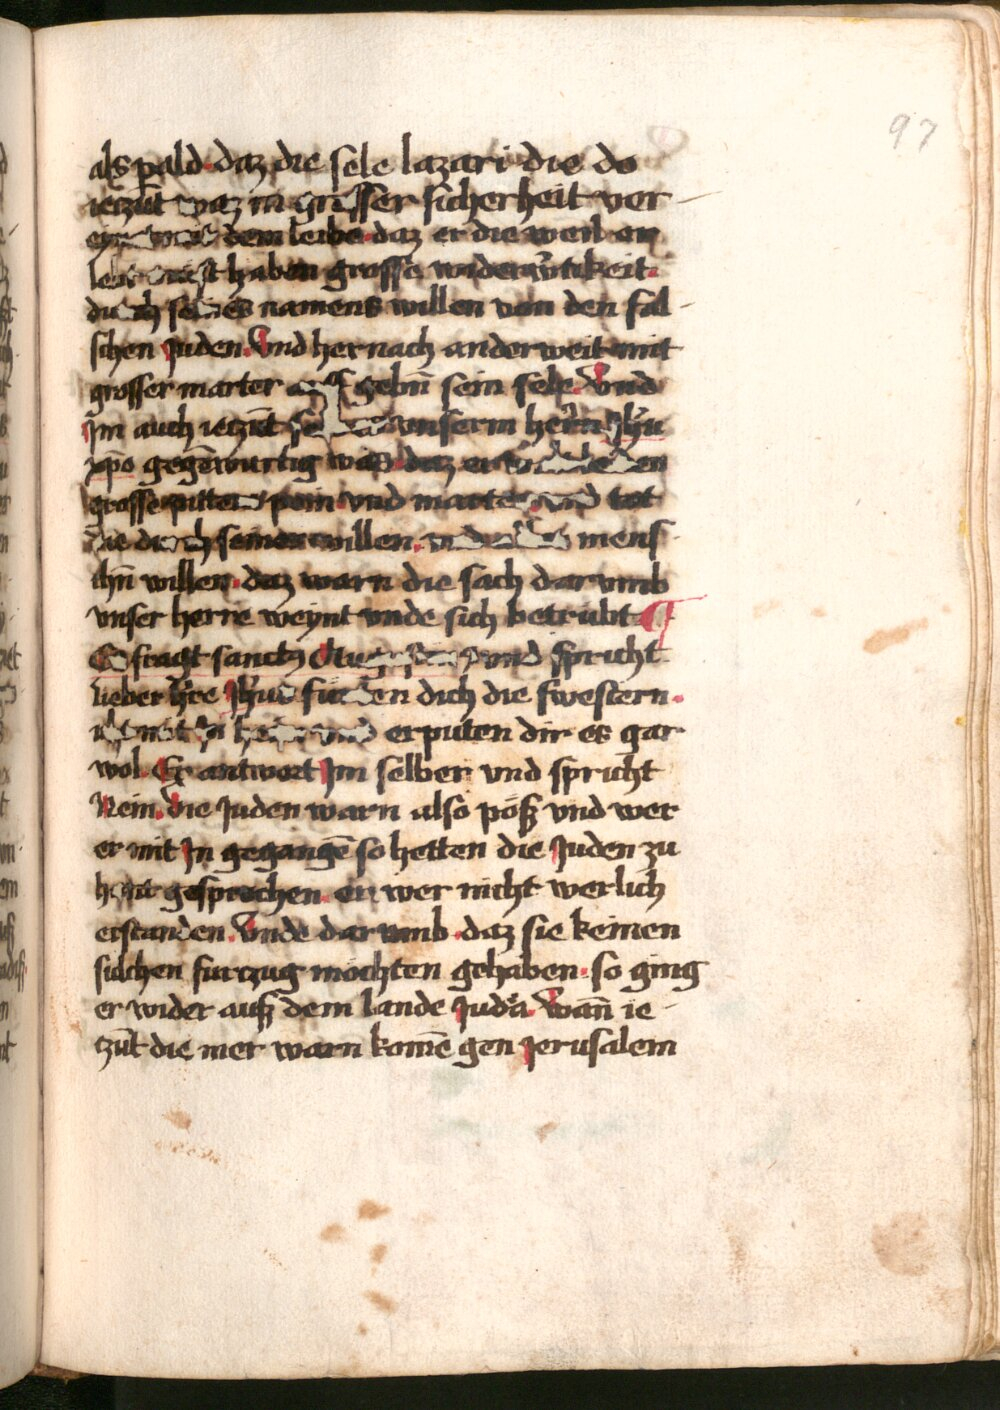 97
als pald daz die sele lazari die do
ieczūt waz in grosser sicherheit vor
dem leibe daz er die weil er
haben grosse widerwͥtikeit
durch seines namens willen von den fal
schen Juden. Vnd hernach anderweit mit
grosser marter gebn̄ sein sele. Vnd
Jm auch ieczūt unserm herrn Jhu
xp̄o gegēwurtig was daz er
grosse pitter pein vnd marter vnd tot
die durch seinen willen. mens
chn̄ willen. daz warn die sach darvmb
vnser herre weynt vnde sich betrubt ¶
Es fragt sanctꝰ vnd spricht
lieber hr̄e Jhus furden dich die swestern.
erputen dir es gar
wol. Er antwort Jm selber vnd spricht
Nein. die Juden warn also poß vnd wer
er mit Jn gegangē so hetten die Juden zu
hant gesprochen. er wer nicht werlich
erstanden. Vnde darvmb. daz sie keinen
sulchen furczug mochten gehaben. so ging
er wider auß dem lande Juda. Wan̄ ie
czūt die mer warn komē gen Jerusalem